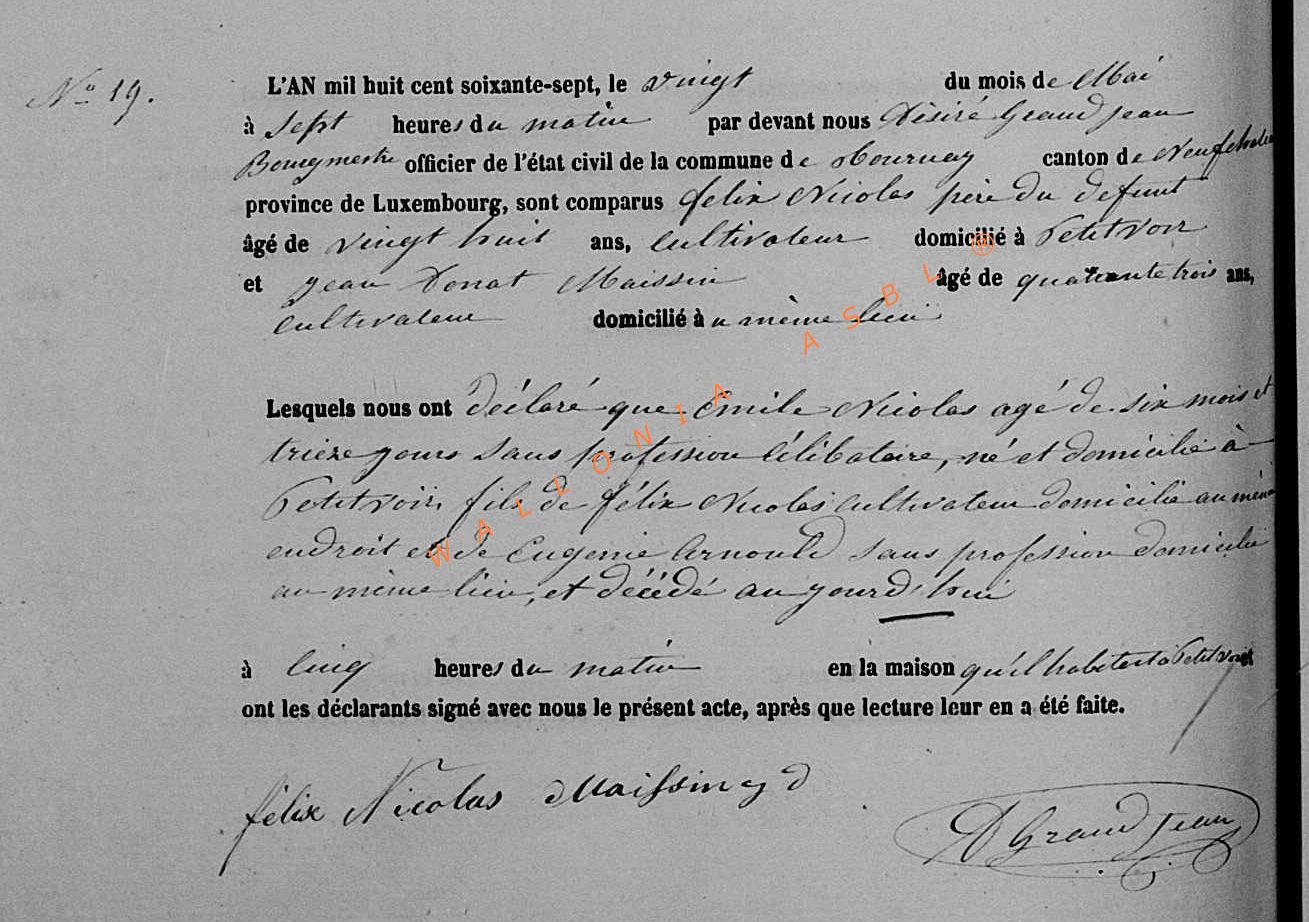 N° 19.
L'AN mil huit cent soixante-sept, le vingt du mois de Mai
à Sept heures du matin par devant nous Désiré Grand jean
Bourgmestre officier de l'état civil de la commune de Tournay canton de Neufchateau
province de Luxembourg, sont comparus felix Nicolas père du defunt
âgé de vingt huit ans, cultivateur domicilié à Petitvoir
et jean Donat Maissin âgé de quarante trois ans,
cultivateur domicilié à u même lieu
Lesquels nous ont déclaré que Emile Nicolas agé de six mois et
trieze jours sans profession célibataire, né et domicilié à
Petitvoir, fils de félix Nicolas cultivateur domicilié au même
endroit et de Eugenie Arnould sans profession domicilié
au même lieu, et décédé au jourd'hui
à cinq heures du matin en la maison qu'il habitent à Petitvoir et
ont les déclarants signé avec nous le présent acte, après que lecture leur en a été faite.
félix Nicolas Maissin j d
D Grand Jean
WALLONIA ASBL ®